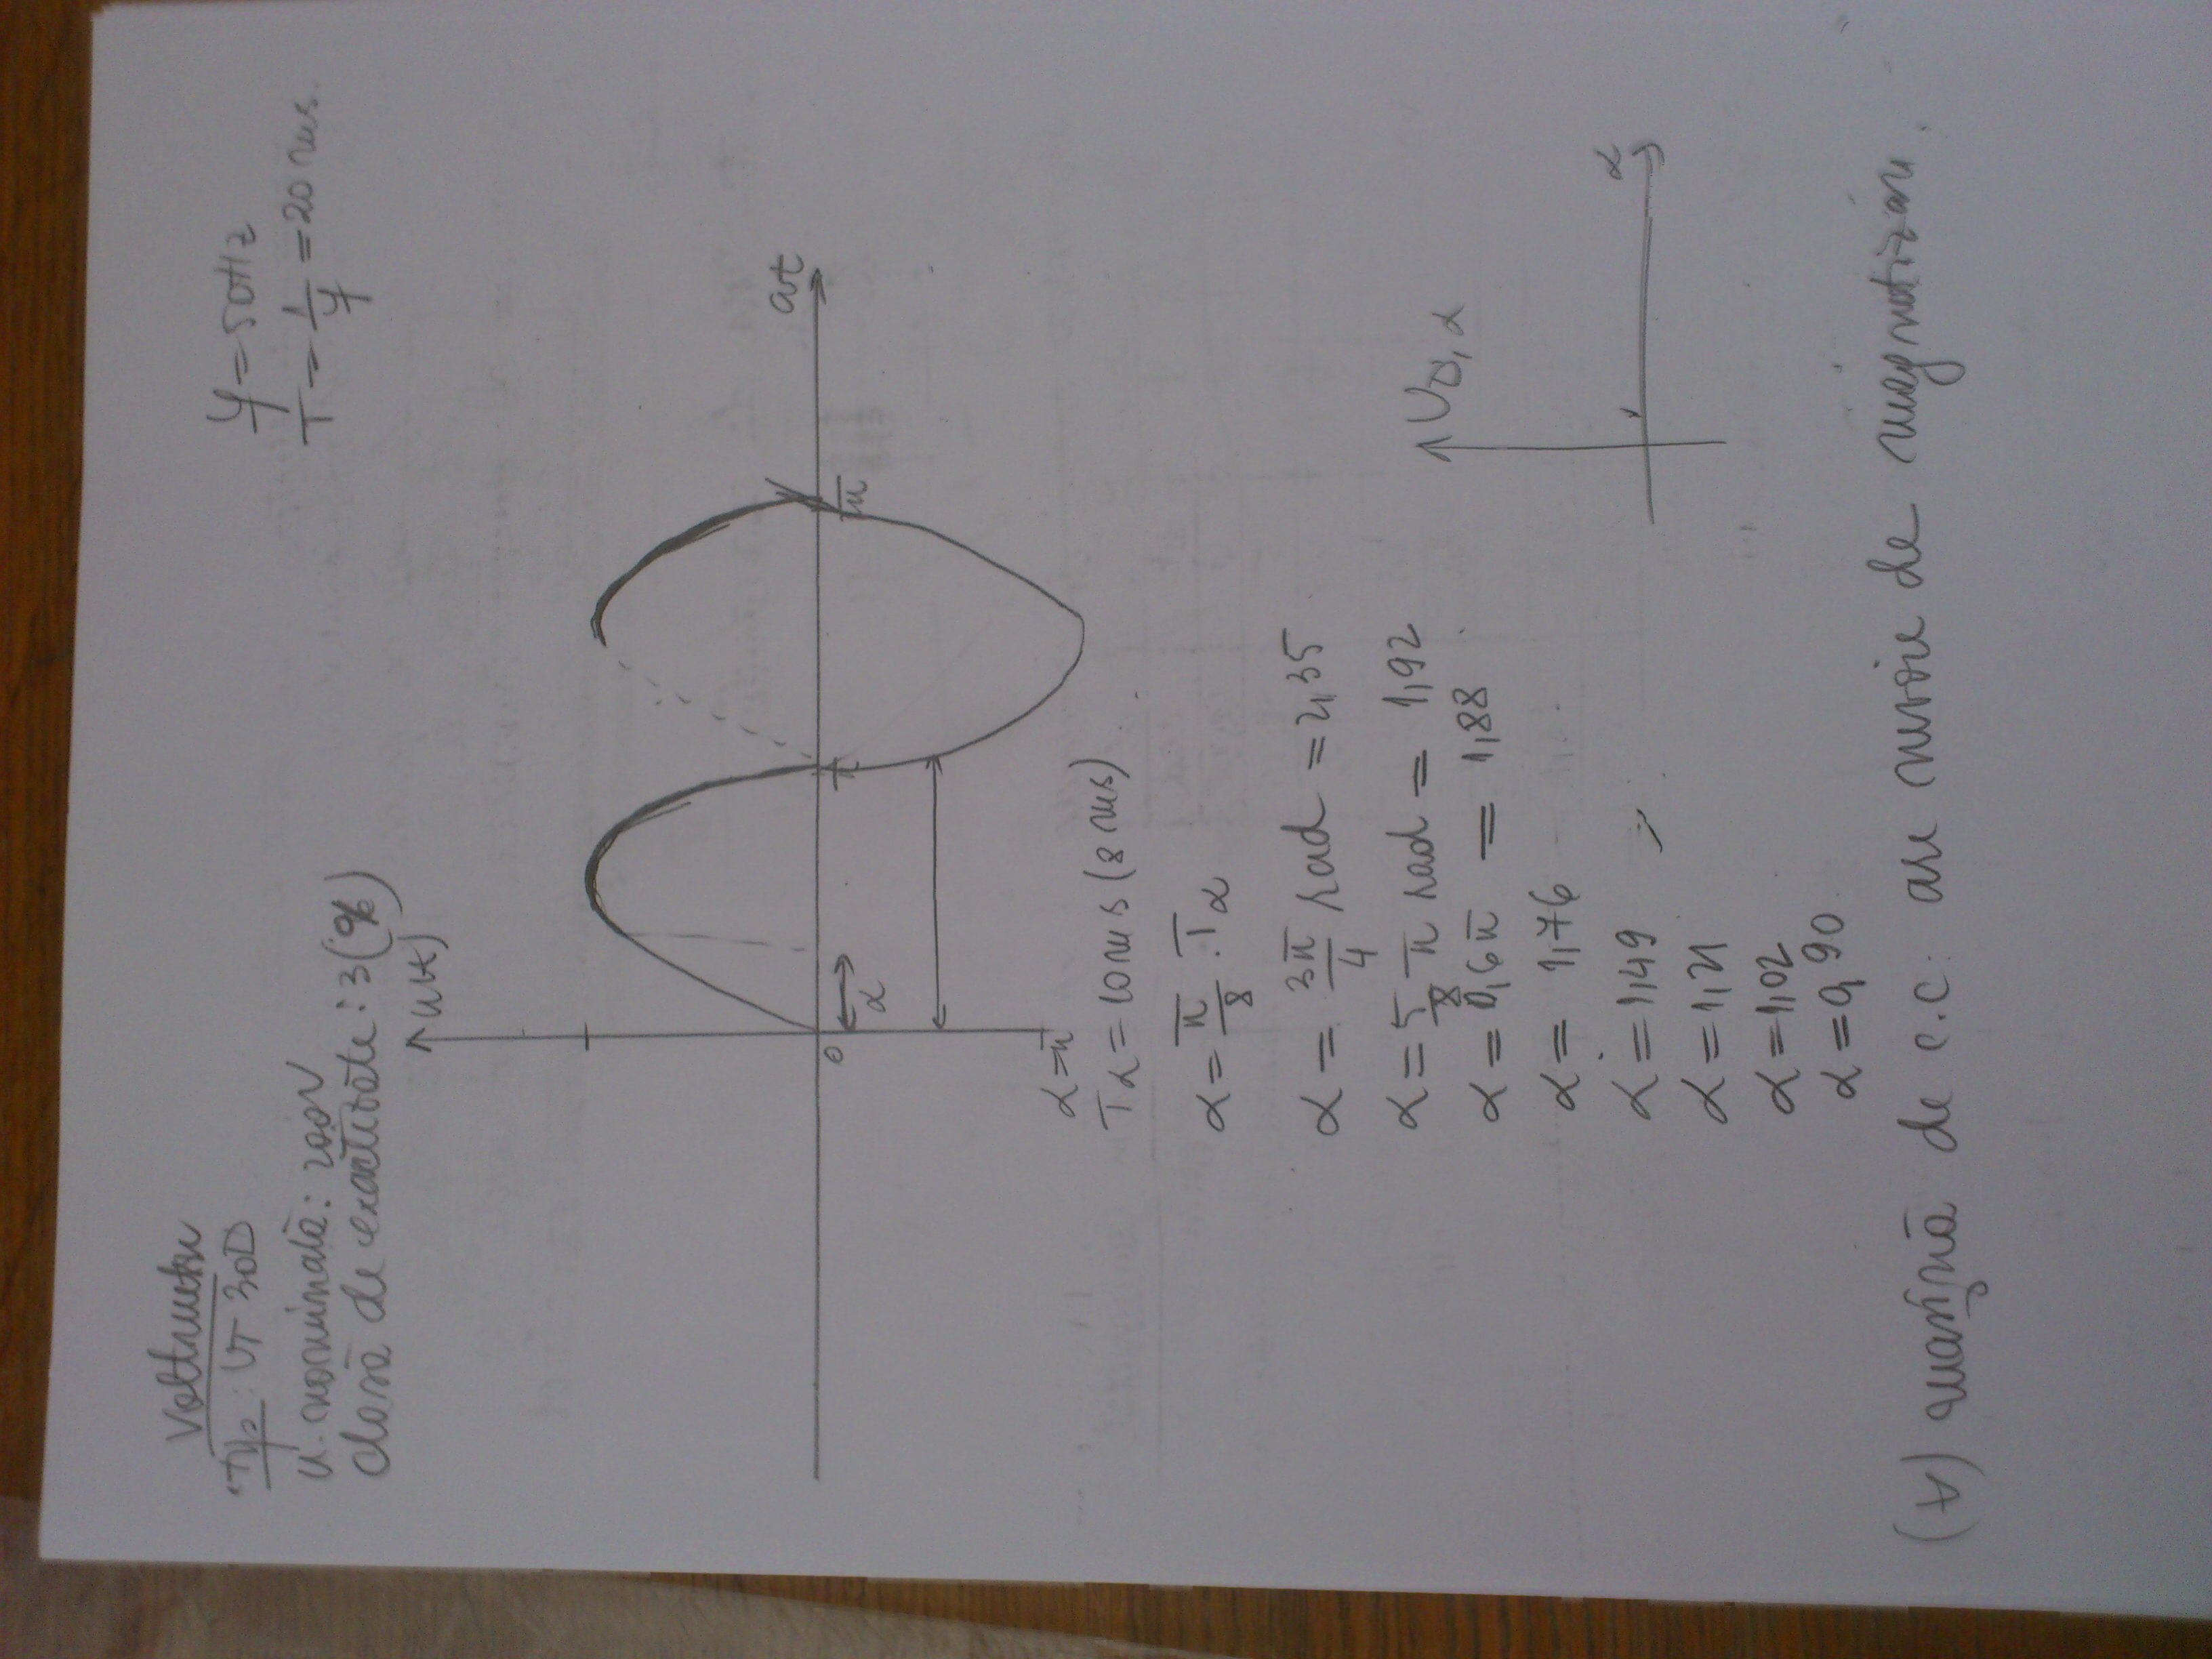 Voltmetru
Tip: VT 30D
U. nominată: 200V
Clasă de exactitate: 3(%)
f = 50Hz
T = 1/f = 20 ms.
u(ωt)
ωt
0
α
π
2π
α = π
Tα = 10 ms (8 ms)
α = π/8 · Tα
α = 3π/4 rad = 2,35
α = 5/8 π rad = 1,92
α = 0,6π = 1,88
α = 1,76
α = 1,49
α = 1,21
α = 1,02
α = 0,90
U0,α
α
(∀) mașină de c.c. are nevoie de magnetizare.